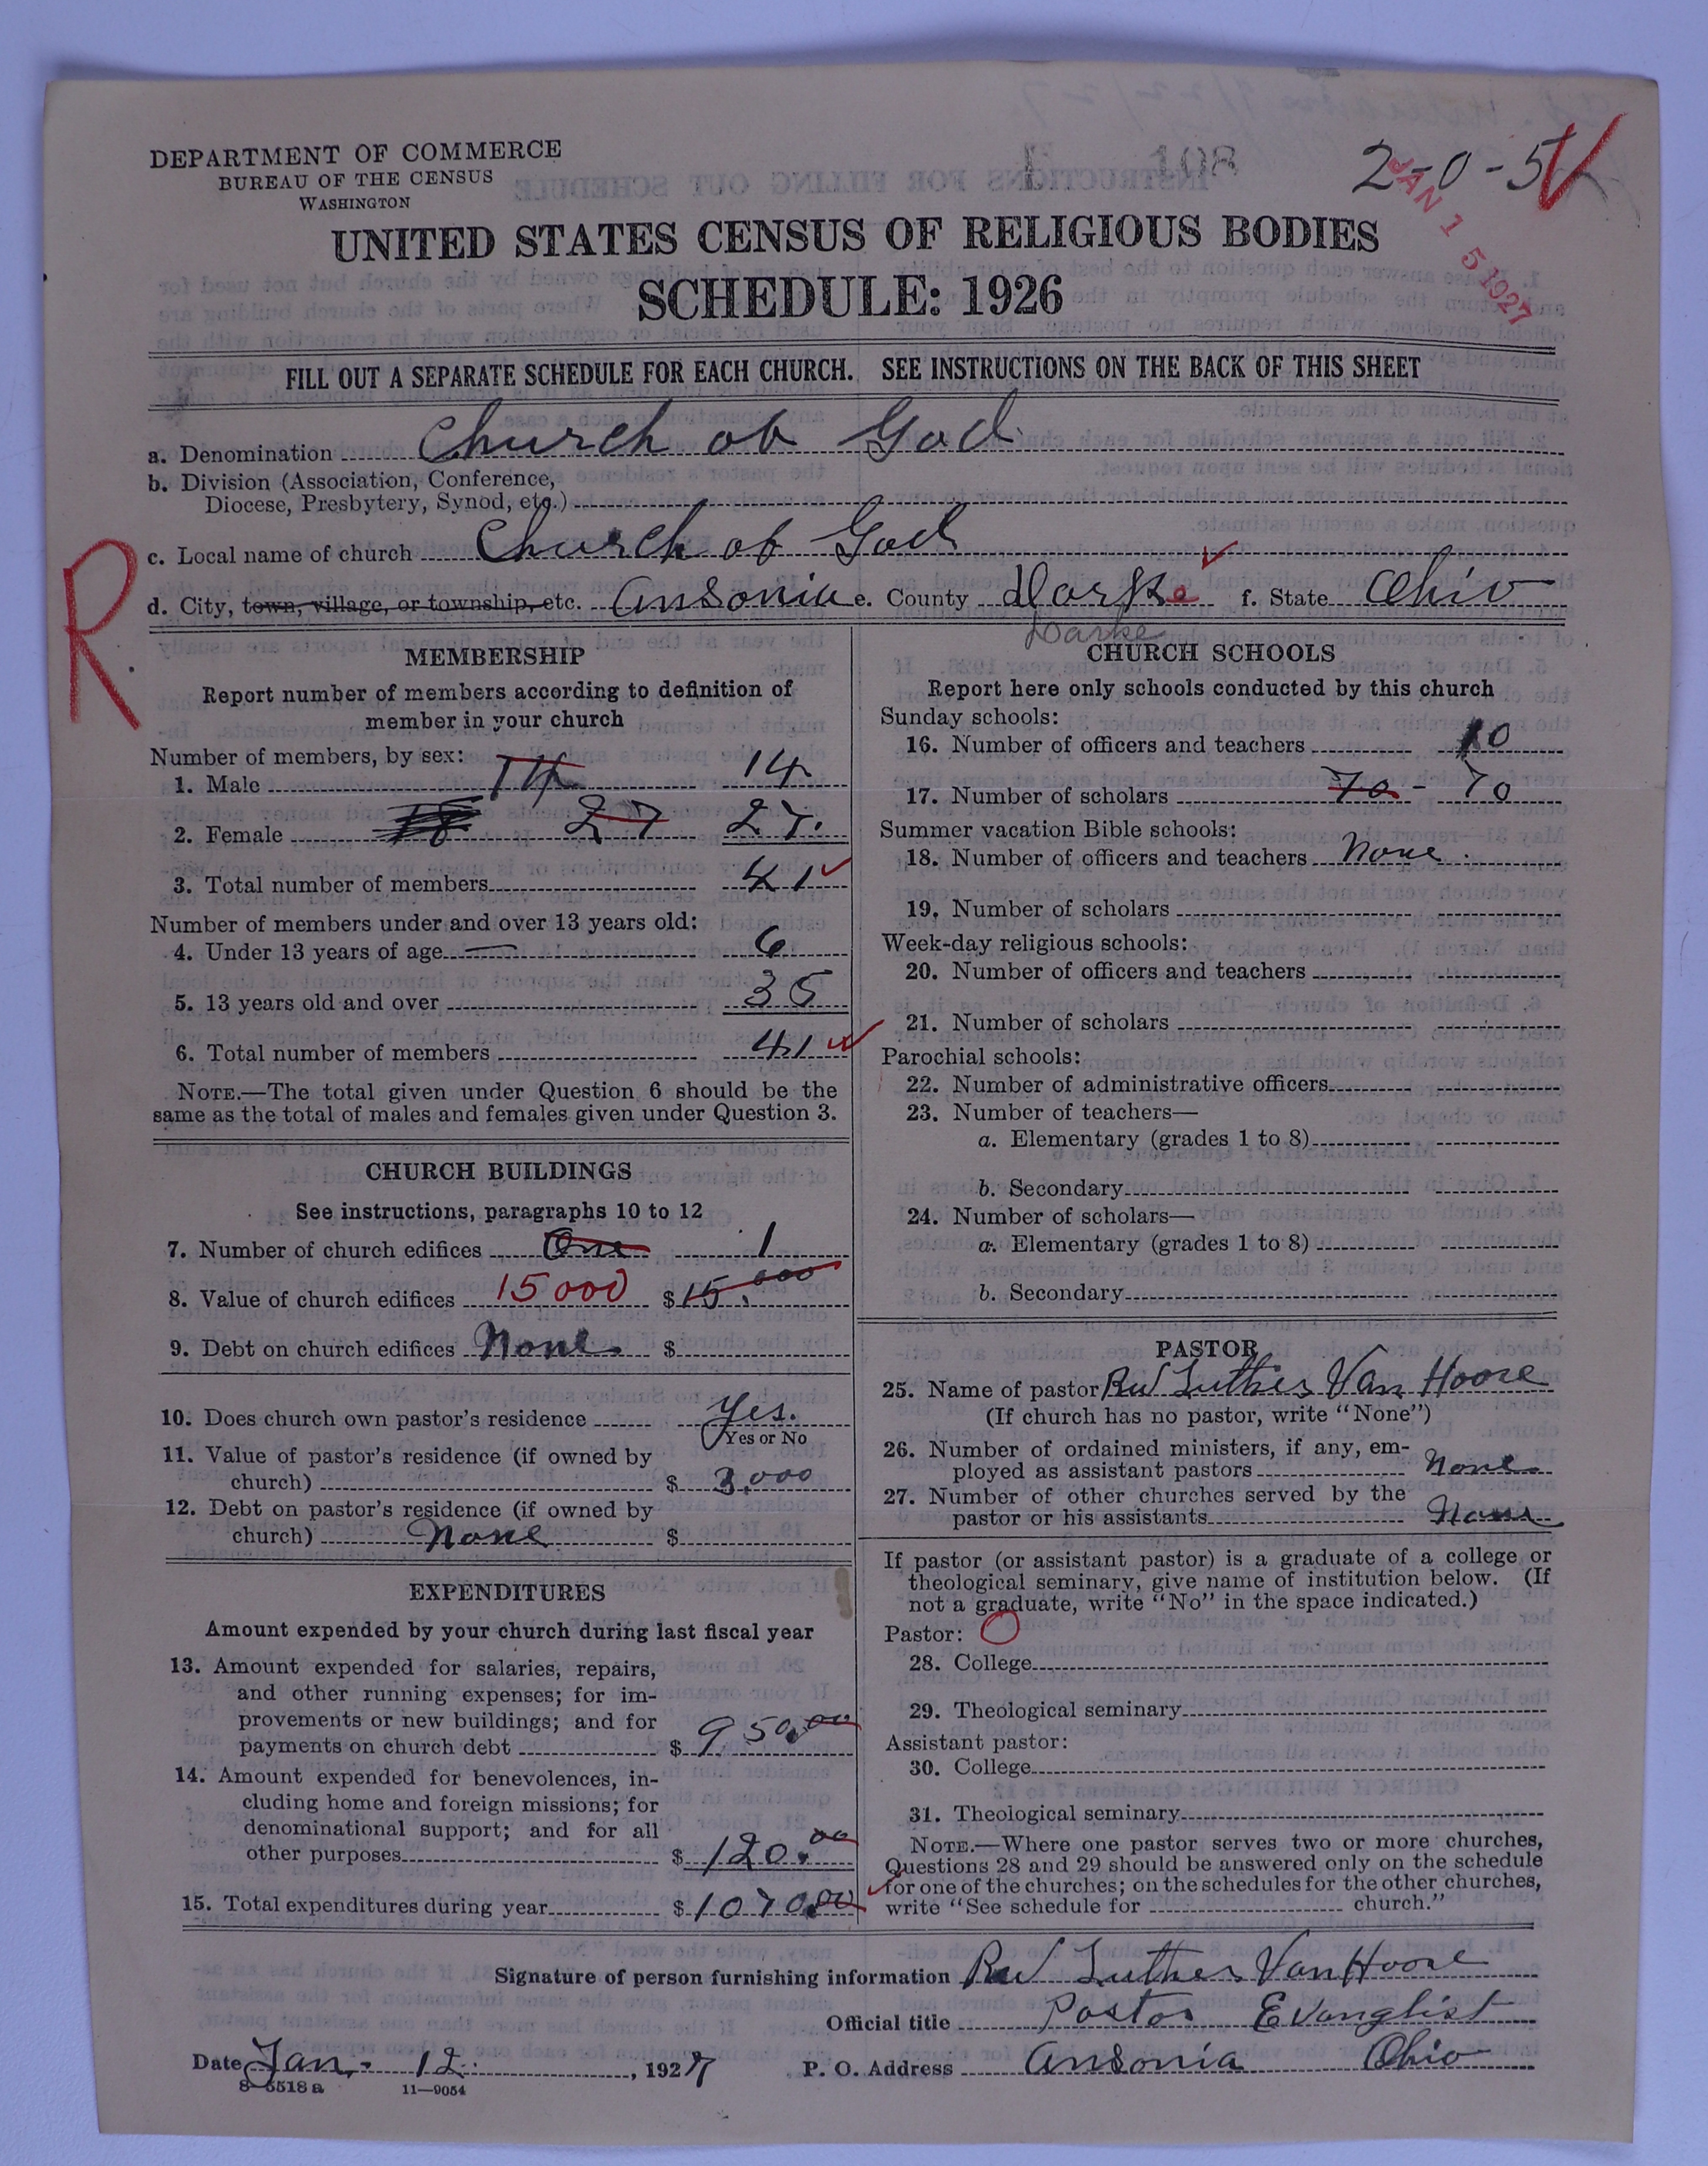 DEPARTMENT OF COMMERCE
BUREAU OF THE CENSUS
WASHINGTON
1 108
2-0-5
JAN 15 1927
UNITED STATES CENSUS OF RELIGIOUS BODIES
SCHEDULE: 1926
FILL OUT A SEPARATE SCHEDULE FOR EACH CHURCH. SEE INSTRUCTIONS ON THE BACK OF THIS SHEET
a. Denomination Church of God
b. Division (Association, Conference,
Diocese, Presbytery, Synod, etc.)
c. Local name of church Church of God
R.
d. City, town, village, or township, etc. Ansonia e. County Darke f. State Ohio
Darke
MEMBERSHIP
Report number of members according to definition of
member in your church
Number of members, by sex:
1. Male 14 14
2. Female 18 27 27.
3. Total number of members 41
Number of members under and over 13 years old:
4. Under 13 years of age 6
5. 13 years old and over 35
6. Total number of members 41
NOTE.—The total given under Question 6 should be the
same as the total of males and females given under Question 3.
CHURCH BUILDINGS
See instructions, paragraphs 10 to 12
7. Number of church edifices One 1
8. Value of church edifices 15000 $15.000
9. Debt on church edifices None. $
10. Does church own pastor's residence Yes.
Yes or No
11. Value of pastor's residence (if owned by
church) $ 3.000
12. Debt on pastor's residence (if owned by
church) None $
EXPENDITURES
Amount expended by your church during last fiscal year
13. Amount expended for salaries, repairs,
and other running expenses; for im-
provements or new buildings; and for
payments on church debt $ 950.00
14. Amount expended for benevolences, in-
cluding home and foreign missions; for
denominational support; and for all
other purposes $ 120.00
15. Total expenditures during year $ 1070.00
CHURCH SCHOOLS
Report here only schools conducted by this church
Sunday schools:
16. Number of officers and teachers 10
17. Number of scholars 70 - 70
Summer vacation Bible schools:
18. Number of officers and teachers None.
19. Number of scholars
Week-day religious schools:
20. Number of officers and teachers
21. Number of scholars
Parochial schools:
22. Number of administrative officers
23. Number of teachers—
a. Elementary (grades 1 to 8)
b. Secondary
24. Number of scholars—
a. Elementary (grades 1 to 8)
b. Secondary
PASTOR
25. Name of pastor Rev Luther Van Hoose
(If church has no pastor, write "None")
26. Number of ordained ministers, if any, em-
ployed as assistant pastors None
27. Number of other churches served by the
pastor or his assistants None
If pastor (or assistant pastor) is a graduate of a college or
theological seminary, give name of institution below. (If
not a graduate, write "No" in the space indicated.)
Pastor: O
28. College
29. Theological seminary
Assistant pastor:
30. College
31. Theological seminary
NOTE.—Where one pastor serves two or more churches,
Questions 28 and 29 should be answered only on the schedule
for one of the churches; on the schedules for the other churches,
write "See schedule for church."
Signature of person furnishing information Rev Luther VanHoose
Official title Pastor Evanglist
Date Jan. 12. , 1927 P. O. Address Ansonia Ohio
8-5518a 11—9054